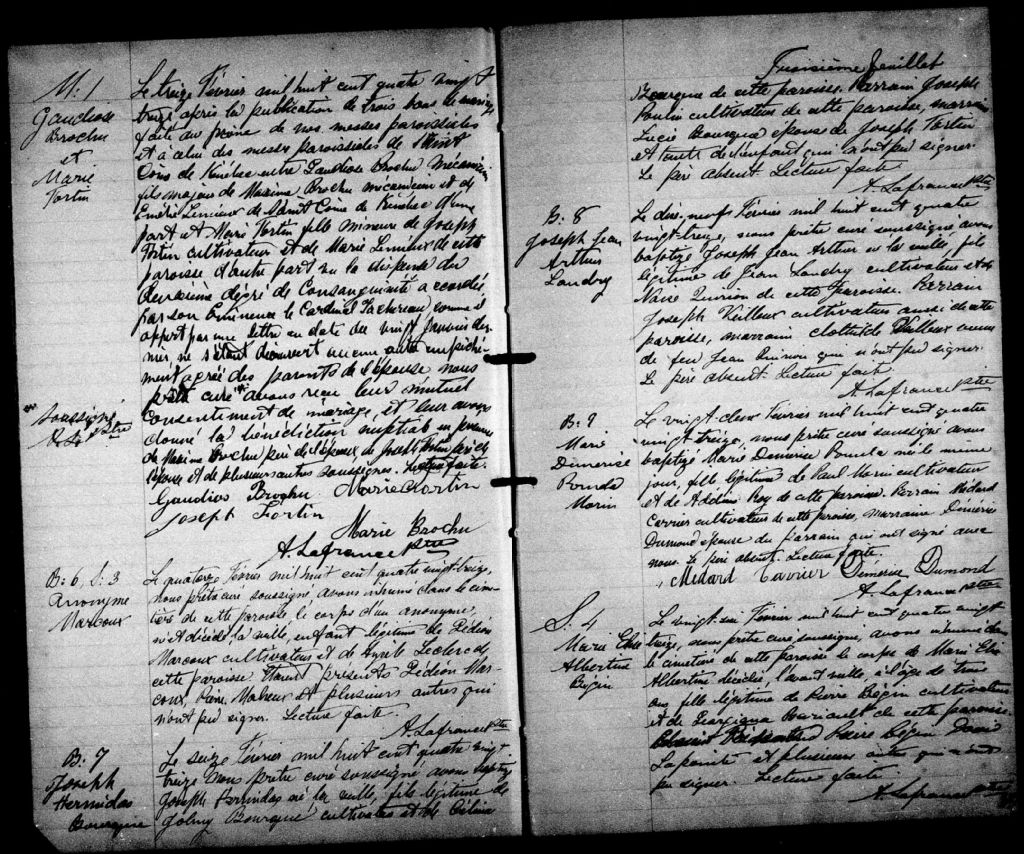 M. 1
Gaudiose
Brochu
et
Marie
Fortin
Le treize Février mil huit cent quatre vingt
treize après la publication de trois bans de mariage
faite au prône de nos messes paroissiales
et à celui des messes paroissiales de Saint
Côme de Kénébec entre Gaudiose Brochu mécanicien
fils majeur de Maxime Brochu mécanicien et de
Lemieux de Saint Côme de Kénébec d'une
part et Marie Fortin fille mineure de Joseph
Fortin cultivateur et de Marie Lemieux de cette
paroisse d'autre part vu la dispense du
deuxième dégré de Consanguinité accordée
par son Eminence le Cardinal Taschereau, comme il
appert par une lettre en date du vingt Janvier der-
nier, ne s'étant découvert aucun autre empêche-
ment agréé des parents de l'épouse nous
curé avons reçu leur mutuel
soussigné
A. L. Ptre
consentement de mariage, et leur avons
donné la bénédiction nuptiale en présence
de Maxime Brochu père de l'époux de Joseph Fortin père de
l'épouse et de plusieurs autres soussignés. Lecture faite.
Gaudios Brochu Marie Fortin
Joseph Fortin
Marie Brochu
A. Lafrance Ptre
B. 6, S. 3
Anonyme
Marcoux
Le quatorze Février mil huit cent quatre vingt-treize,
nous prêtre curé soussigné, avons inhumé dans le cime-
tière de cette paroisse, le corps d'un anonyme,
né et décédé la veille, enfant légitime de Gédéon
Marcoux cultivateur et de Leclerc de
cette paroisse. Etaient présents Gédéon Mar-
coux, Maheux et plusieurs autres qui
n'ont pu signer. Lecture faite.
A. Lafrance Ptre
B. 7
Joseph
Hermidas
Bourque
Le seize Février mil huit cent quatre vingt
treize nous prêtre curé soussigné avons baptisé
Joseph Hermidas né la veille, fils légitime de
Bourque cultivateur et de Célina
Troisième feuillet
Bourque de cette paroisse. Parrain Joseph
Poulin cultivateur de cette paroisse, marraine
Lucie Bourque épouse de Joseph Fortin
et tante de l'enfant qui n'ont pu signer.
Le père absent. Lecture faite.
A. Lafrance Ptre
B. 8
Joseph Jean
Arthur
Landry
Le dix-neuf Février mil huit cent quatre
vingt-treize, nous prêtre curé soussigné avons
baptisé Joseph Jean Arthur né la veille, fils
légitime de Jean Landry cultivateur et de
de cette Paroisse. Parrain
Joseph Veilleux cultivateur aussi de cette
paroisse, marraine Clothilde Veilleux veuve
de feu Jean qui n'ont pu signer.
Le père absent. Lecture faite.
A. Lafrance Ptre
B. 9
Marie
Démerise
Morin
Le vingt-deux Février mil huit cent quatre
vingt-treize, nous prêtre curé soussigné avons
baptisé Marie Démerise née le même
jour, fille légitime de Paul Morin cultivateur
et de Adeline Roy de cette paroisse. Parrain Médard
Carrier cultivateur de cette paroisse, marraine Démerise
Dumond épouse du parrain qui ont signé avec
nous. Le père absent. Lecture faite.
Médard Carrier Démerise Dumond
A. Lafrance Ptre
S. 4
Marie
Albertine
Bégin
Le vingt-six Février mil huit cent quatre vingt
treize, nous prêtre curé soussigné, avons inhumé dans
le cimetière de cette paroisse le corps de Marie
Albertine décédée, l'avant veille, à l'âge de
fille légitime de Pierre Bégin cultivateur
et de Georgiana de cette paroisse.
Pierre Bégin
Lapointe et plusieurs autres qui n'ont
pu signer. Lecture faite.
A. Lafrance Ptre